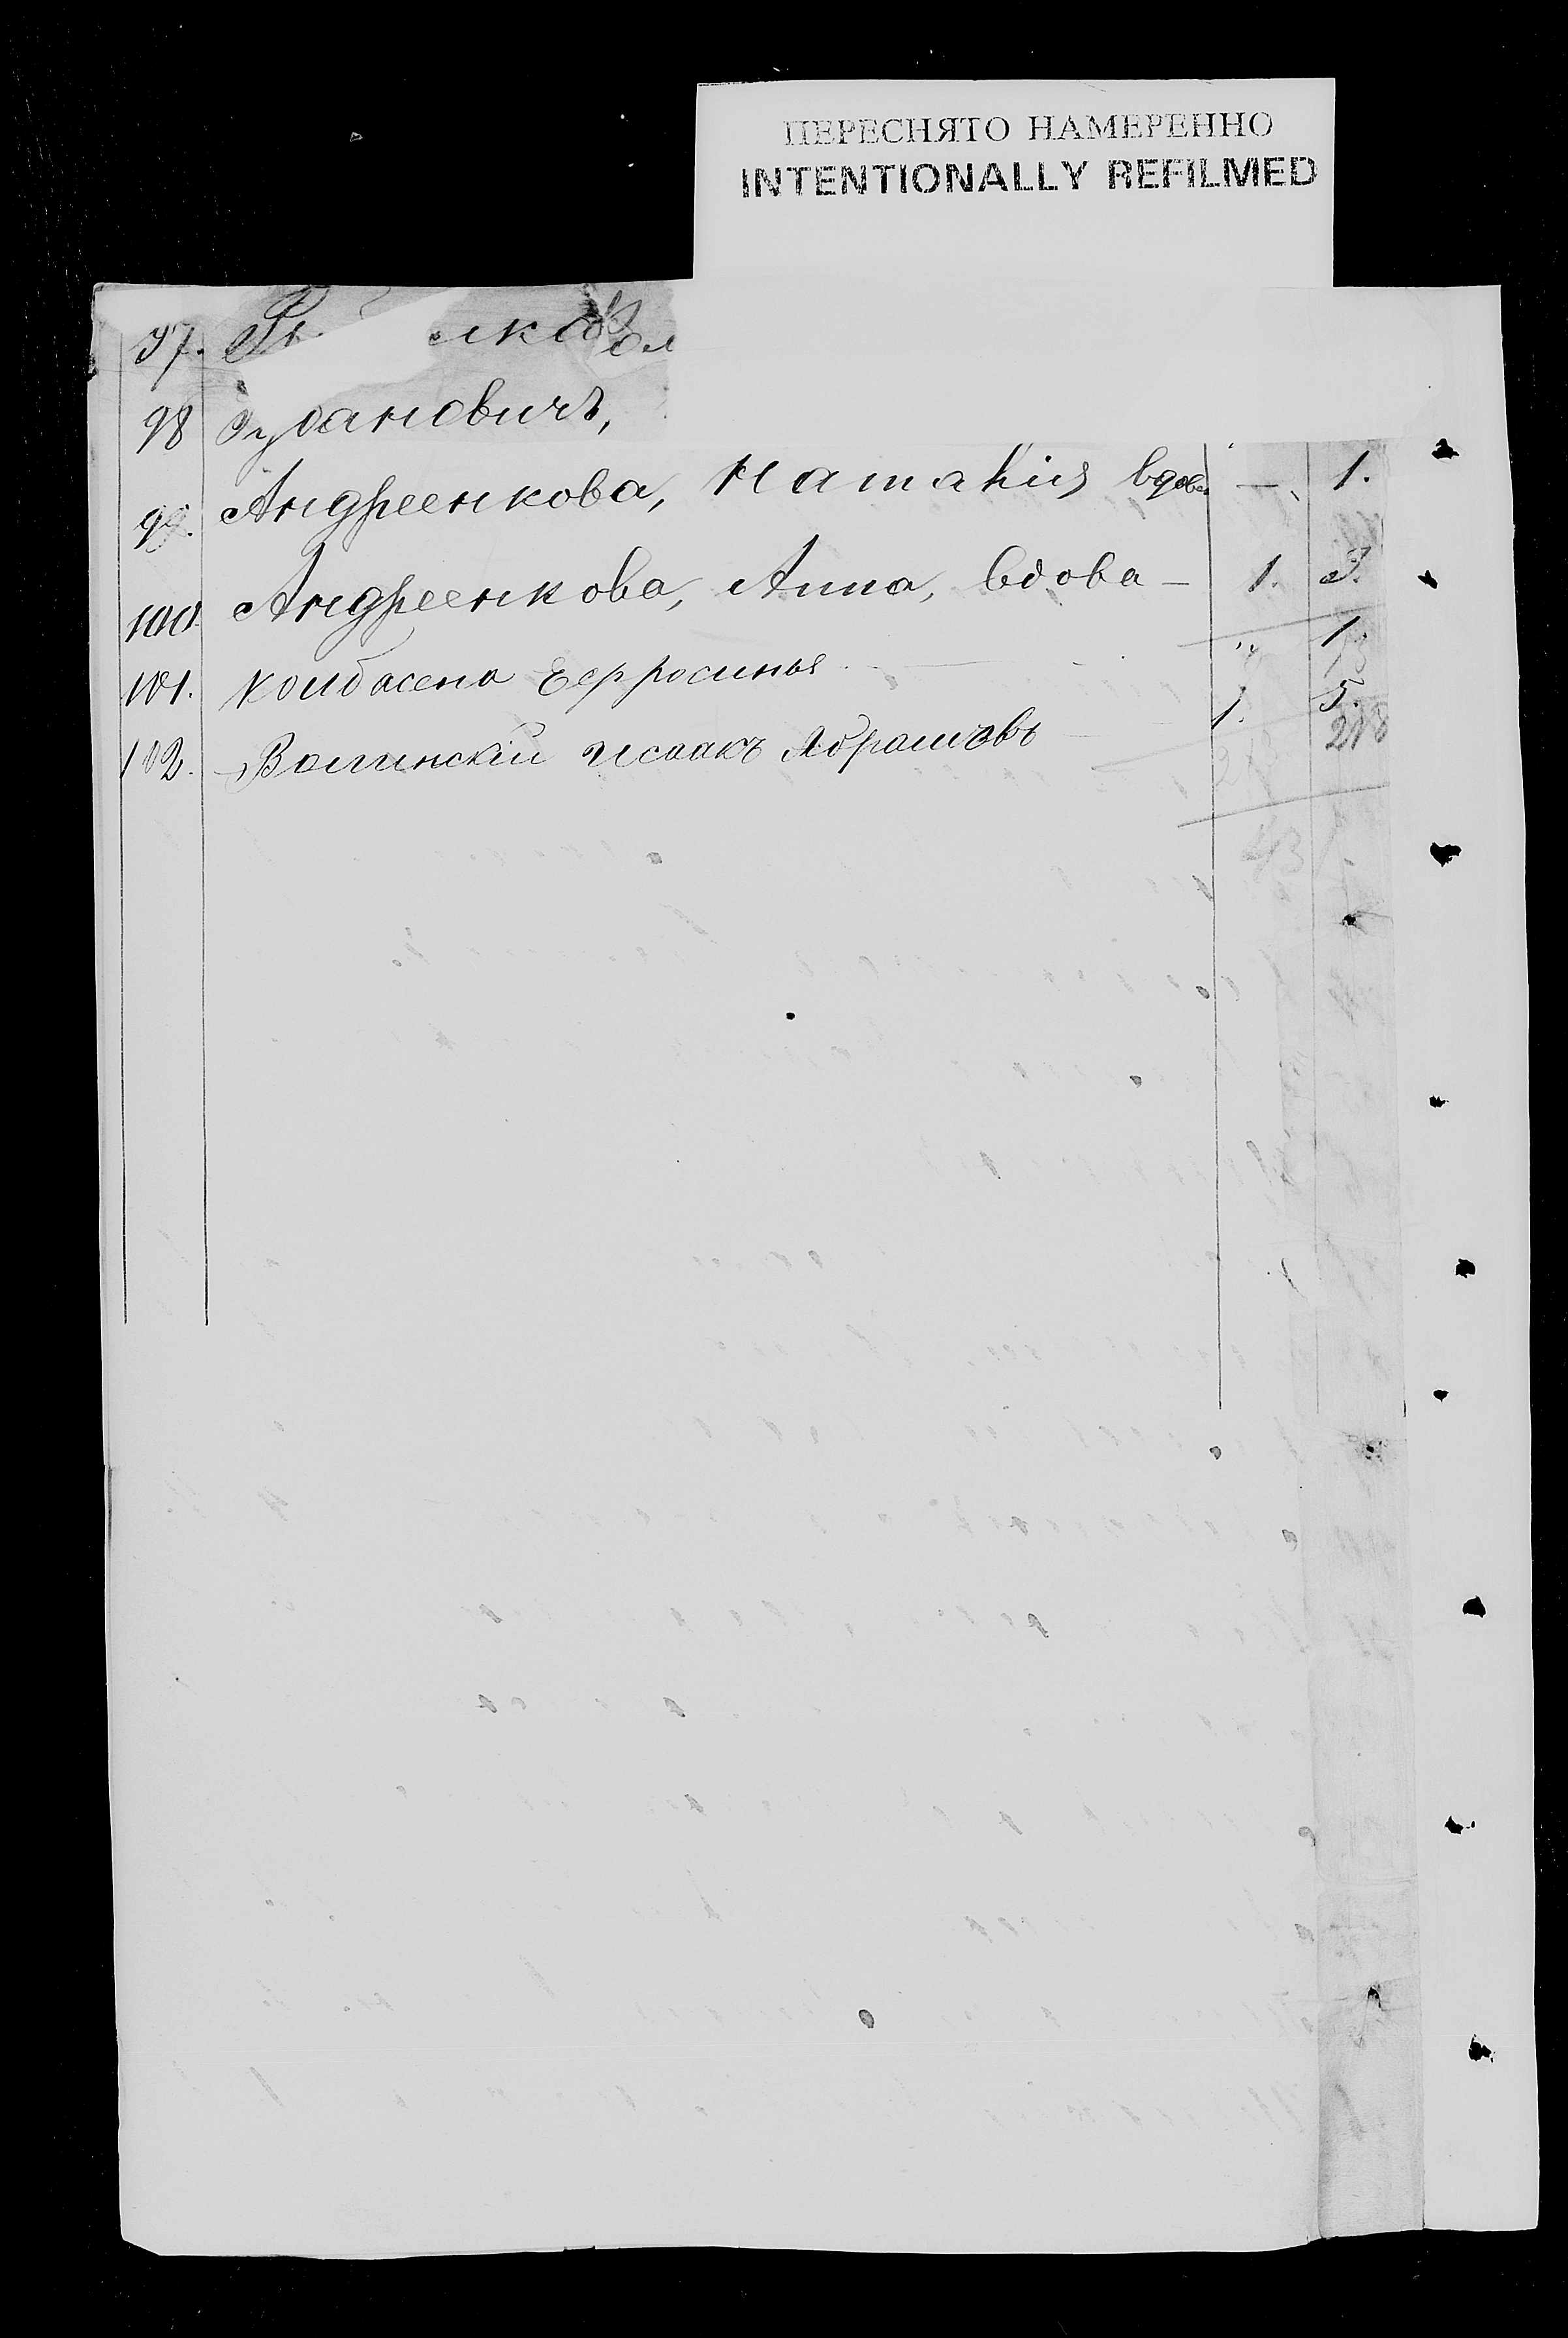 ПЕРЕСНЯТО НАМЕРЕННО
INTENTIONALLY REFILMED
97.
98
99. Андреенкова, Наталія вдова — 1.
100. Андреенкова, Анна, вдова — 1. 3.
101. Колбасена Ефросинья " 1.
102. Волинскій Исаакъ Абрамовъ 1. 5.
218
43